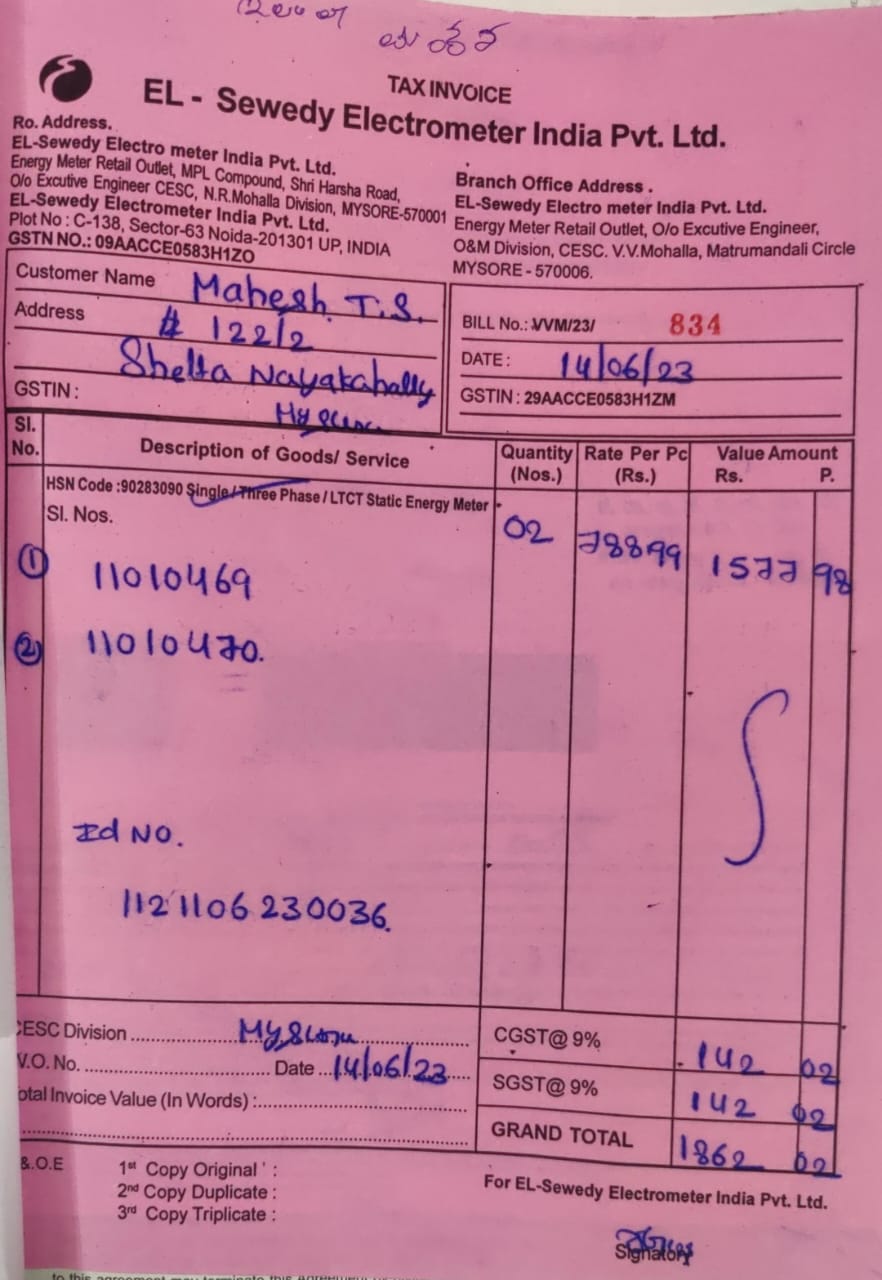 TAX INVOICE
EL - Sewedy Electrometer India Pvt. Ltd.
Ro. Address.
EL-Sewedy Electro meter India Pvt. Ltd.
Energy Meter Retail Outlet, MPL Compound, Shri Harsha Road,
O/o Excutive Engineer CESC, N.R.Mohalla Division, MYSORE-570001
EL-Sewedy Electrometer India Pvt. Ltd.
Plot No : C-138, Sector-63 Noida-201301 UP, INDIA
GSTN NO.: 09AACCE0583H1ZO
Branch Office Address .
EL-Sewedy Electro meter India Pvt. Ltd.
Energy Meter Retail Outlet, O/o Excutive Engineer,
O&M Division, CESC. V.V.Mohalla, Matrumandali Circle
MYSORE - 570006.
Customer Name Mahesh. T.S.
Address # 122/2
Shelta Nayakahally
GSTIN :
BILL No.: VVM/23/ 834
DATE : 14/06/23
GSTIN : 29AACCE0583H1ZM
Sl. No. Description of Goods/ Service Quantity (Nos.) Rate Per Pc (Rs.) Value Amount Rs. P.
HSN Code :90283090 Single / Three Phase / LTCT Static Energy Meter
Sl. Nos. 02 78899 1577 98
① 11010469
② 11010470.
Id NO.
1121106230036.
CESC Division ........ Mysuru ........ CGST@ 9% 142 02
V.O. No. ........ Date ... 14/06/23 SGST@ 9% 142 02
otal Invoice Value (In Words) :........ GRAND TOTAL 1862 02
&.O.E
1st Copy Original ' :
2nd Copy Duplicate :
3rd Copy Triplicate :
For EL-Sewedy Electrometer India Pvt. Ltd.
Signatory